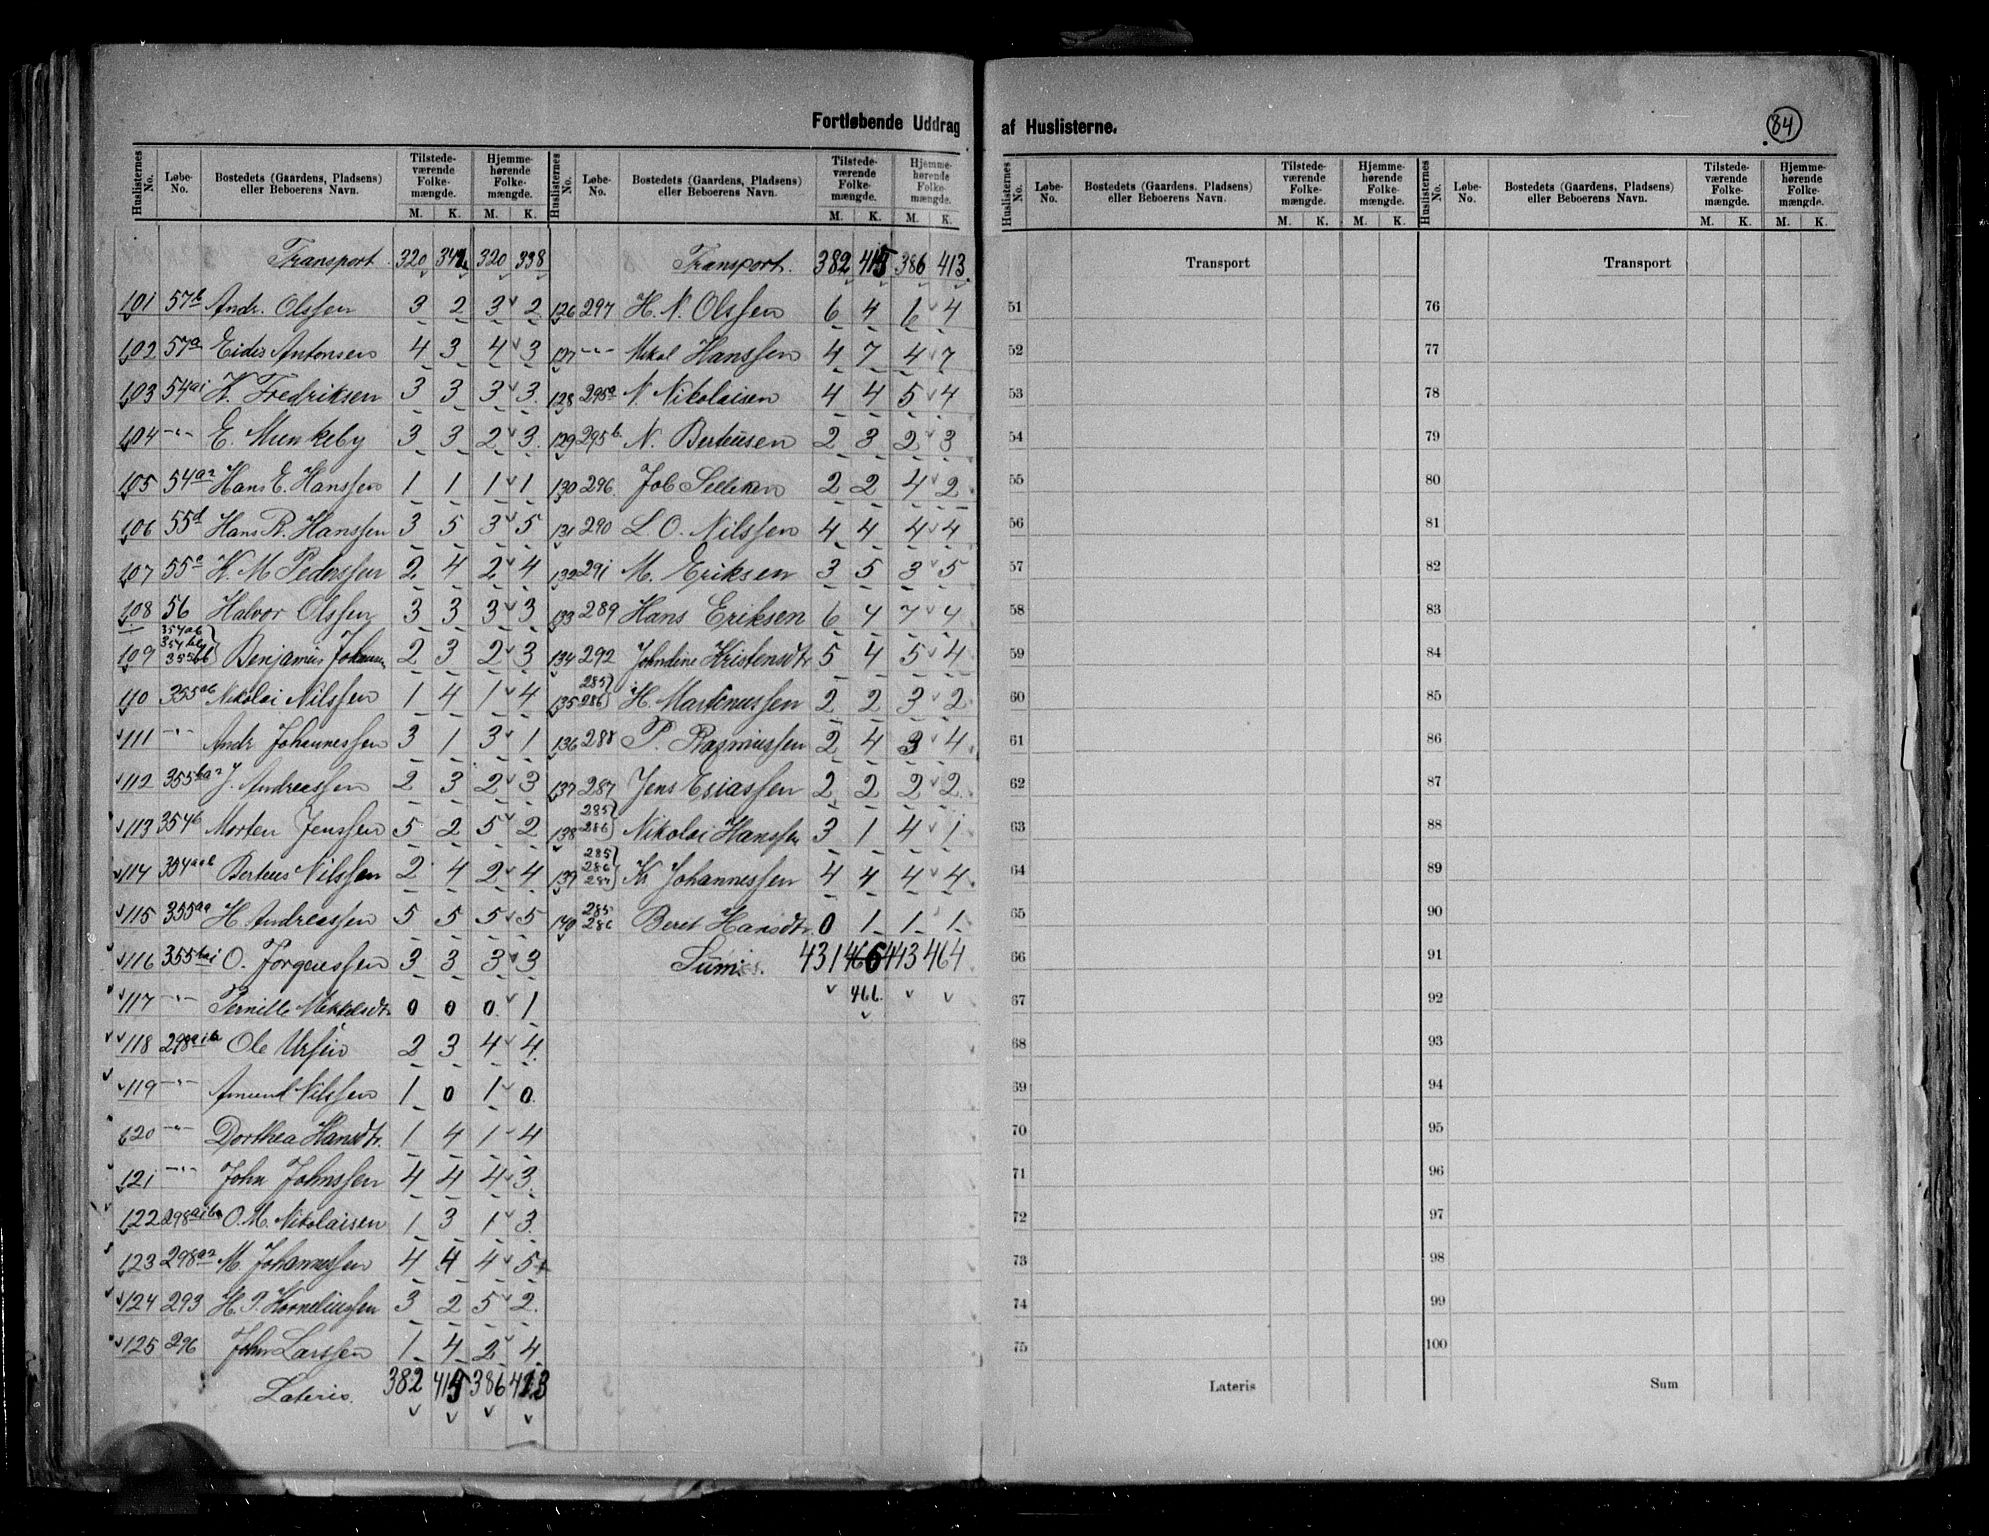 Fortløbende Uddrag af Huslisterne.
84
Huslisternes No. Løbe-No. Bostedets (Gaardens, Pladsens) eller Beboerens Navn. Tilstedeværende Folkemængde. M. K. Hjemmehørende Folkemængde. M. K.
Transport 320 342 320 338
101 57b Andr. Olssen 3 2 3 2
102 57a Eider Antonsen 4 3 4 3
103 54a1 H. Fredriksen 3 3 3 3
104 -"- E. Munkeby 3 3 2 3
105 54a2 Hans E. Hanssen 1 1 1 1
106 55d Hans R. Hanssen 3 5 3 5
107 55a H. M Pederssen 2 4 2 4
108 56 Halvor Olssen 3 3 3 3
109 354ab 355bb Benjamin 2 3 2 3
110 355ab Nikolai Nilssen 1 4 1 4
111 -"- Andr Johannessen 3 1 3 1
112 355ba2 J. Andreassen 2 3 2 3
113 354b Morten Jenssen 5 2 5 2
114 354aab Berteus Nilssen 2 4 2 4
115 355aa H. Andreassen 5 5 5 5
116 355ba1 O. Jörgenssen 3 3 3 3
117 -"- Pernille Mikkelsdtr 0 0 0 1
118 298a1b Ole Ursin 2 3 4 4
119 -"- Amund Nilssen 1 0 1 0
120 -"- Dorthea Hansdtr. 1 4 1 4
121 -"- John Johnssen 4 4 4 3
122 298a1b O. M. Nikolaisen 1 3 1 3
123 298a2 M. Johannessen 4 4 4 5
124 293 H. P. Korneliussen 3 2 5 2
125 296 John Larssen 1 4 2 4
Lateris. 382 415 386 413
Huslisternes No. Løbe-No. Bostedets (Gaardens, Pladsens) eller Beboerens Navn. Tilstedeværende Folkemængde. M. K. Hjemmehørende Folkemængde. M. K.
Transport. 382 415 386 413
126 297 H. N. Olssen 6 4 6 4
127 -"- Mikal Hanssen 4 7 4 7
128 295a N. Nikolaisen 4 4 5 4
129 295b N. Berteusen 2 3 2 3
130 296 Job 2 2 4 2
131 290 L. O. Nilssen 4 4 4 4
132 291 M. Eriksen 3 5 3 5
133 289 Hans Eriksen 6 4 7 4
134 292 Johndine Kristensdtr 5 4 5 4
135 285 286 H. Martinussen 2 2 3 2
136 288 P. Rasmussen 2 4 3 4
137 287 Jens Esiassen 2 2 2 2
138 285 286 Nikolai Hanssen 3 1 4 1
139 285 286 287 Kr Johannessen 4 4 4 4
140 285 286 Beret Hansdtr. 0 1 1 1
Sum 431 466 443 464
466.
Huslisternes No. Løbe-No. Bostedets (Gaardens, Pladsens) eller Beboerens Navn. Tilstedeværende Folkemængde. M. K. Hjemmehørende Folkemængde. M. K.
Transport
51
52
53
54
55
56
57
58
59
60
61
62
63
64
65
66
67
68
69
70
71
72
73
74
75
Lateris
Huslisternes No. Løbe-No. Bostedets (Gaardens, Pladsens) eller Beboerens Navn. Tilstedeværende Folkemængde. M. K. Hjemmehørende Folkemængde. M. K.
Transport
76
77
78
79
80
81
82
83
84
85
86
87
88
89
90
91
92
93
94
95
96
97
98
99
100
Sum